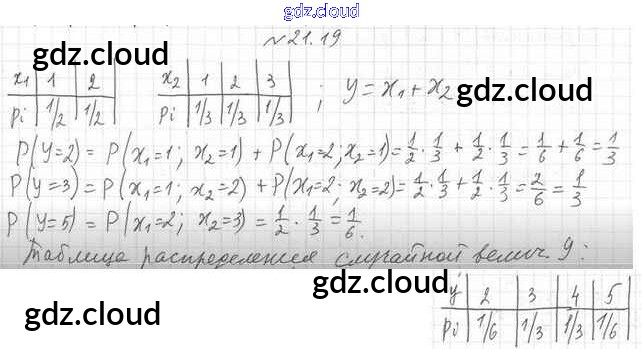 gdz.cloud
№21.19
gdz.cloud gdz.cloud
x₁ | 1 | 2
pi | 1/2 | 1/2
x₂ | 1 | 2 | 3
pi | 1/3 | 1/3 | 1/3
; y = x₁ + x₂ gdz.cloud
P(y=2) = P(x₁=1; x₂=1) + P(x₁=2; x₂=1) = 1/2 · 1/3 + 1/2 · 1/3 = 1/6 + 1/6 = 1/3
P(y=3) = P(x₁=1; x₂=2) + P(x₁=2; x₂=2) = 1/2 · 1/3 + 1/2 · 1/3 = 2/6 = 1/3
P(y=5) = P(x₁=2; x₂=3) = 1/2 · 1/3 = 1/6.
Таблица распределения случайной велич. y:
gdz.cloud gdz.cloud
y | 2 | 3 | 4 | 5
pi | 1/6 | 1/3 | 1/3 | 1/6
gdz.cloud gdz.cloud